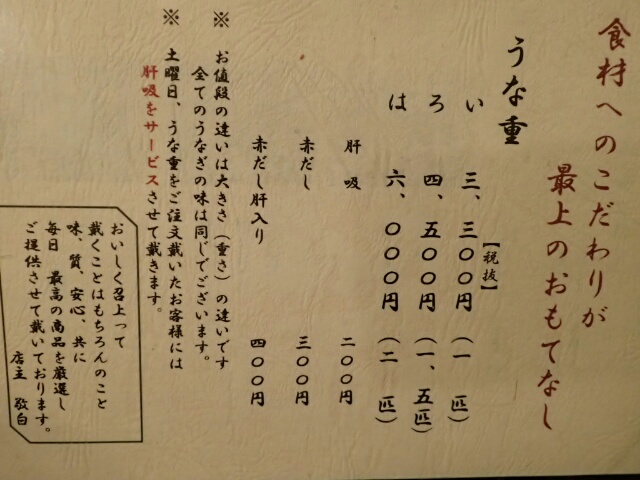 食材へのこだわりが
最上のおもてなし
うな重
【税抜】
い 三、三〇〇円 (一 匹)
ろ 四、五〇〇円 (一、五匹)
は 六、〇〇〇円 (二 匹)
肝吸 二〇〇円
赤だし 三〇〇円
赤だし肝入り 四〇〇円
※ お値段の違いは大きさ(重さ)の違いです
全てのうなぎの味は同じでございます。
※ 土曜日、うな重をご注文戴いたお客様には
肝吸をサービスさせて戴きます。
おいしく召上って
戴くことはもちろんのこと
味、質、安心、共に
毎日 最高の商品を厳選し
ご提供させて戴いております。
店主 敬白